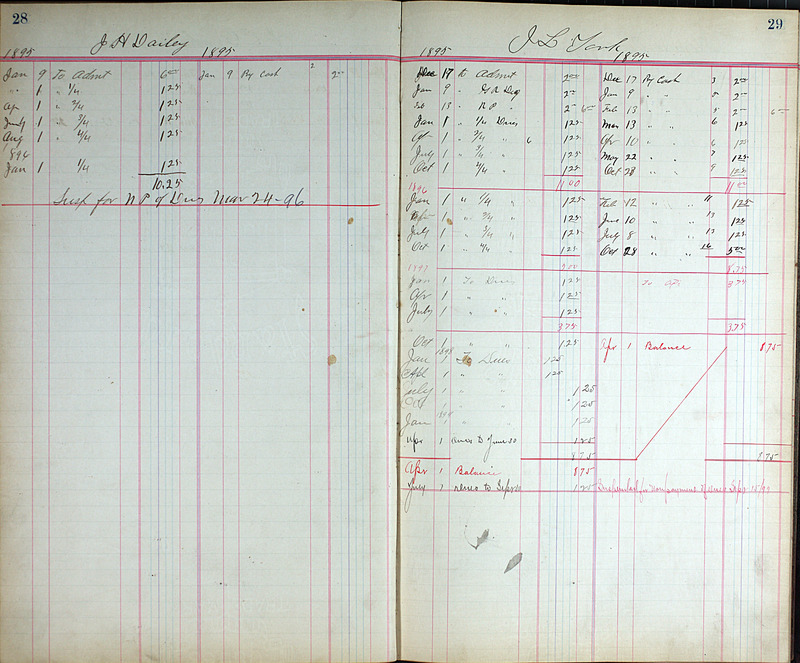 28
J H Dailey
1895 1895
Jan 9 To Admt 6 00 Jan 9 By Cash 2 2 00
" 1 " 1/4 1 25
Ap 1 " 2/4 1 25
July 1 " 3/4 1 25
Aug 1 " 4/4 1 25
896
Jan 1 1/4 1 25
10.25
Susp for N P of Dues Mar 24-96
29
J L York
1895 1895
Dec 17 to Admt 2 00 Dec 17 By Cash 3 2 00
Jan 9 " " 2 00 Jan 9 " " 5 2 00
13 " 2 6 00 Feb 13 " " 5 2 00 6 00
Jan 1 " 1/4 Dues 1 25 Mar 13 " " 6 1 25
Apr 1 " 2/4 " 6 1 25 Apr 10 " " 6 1 25
July 1 " 3/4 " 1 25 May 22 " " 7 1 25
Oct 1 " 4/4 " 1 25 Oct 28 " " 9 1 25
11 00 11 00
1896
Jan 1 " 1/4 " 1 25 Feb 12 " " 11 1 25
Apr 1 " 2/4 " 1 25 June 10 " " 13 1 25
July 1 " 3/4 " 1 25 July 8 " " 13 1 25
Oct 1 " 4/4 " 1 25 Oct 28 " " 16 5 00
5 00 8.75
1897
Jan 1 To Dues 1 25 To Ap. 3 75
Apr 1 " " 1 25
July 1 " " 1 25
3 75 3 75
Oct 1 " " 1 25 Apr 1 Balance 8 75
1898
Jan 1 To Dues 1 25
Apl 1 " " 1 25
July 1 " " 1 25
Oct 1 " " 1 25
Jan 1 " 1 25
Apr 1 dues to June 30 1 25
8 75 8 75
Apr 1 Balance 8 75
July 1 dues to Sep 30 1 25 Suspended for nonpayment of dues Sep